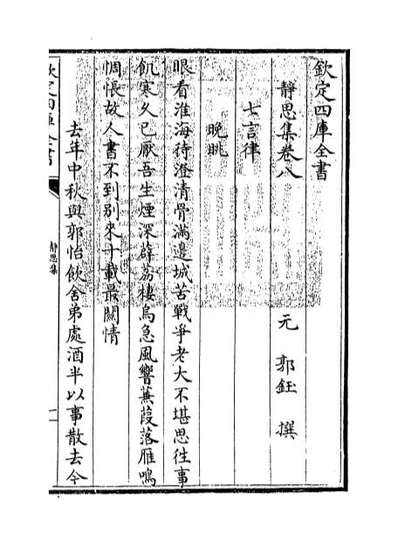 欽定四庫全書
静思集卷八
元 郭鈺 撰
七言律
晚眺
眼看淮海待澄清骨滿邊城苦戰爭老大不堪思往事
飢寒久已厭吾生煙深薜荔棲烏急風響蒹葭落雁鳴
惆悵故人書不到别來十載最關情
去年中秋與郭怡飲舍弟處酒半以事散去今
欽定四庫全書
静思集